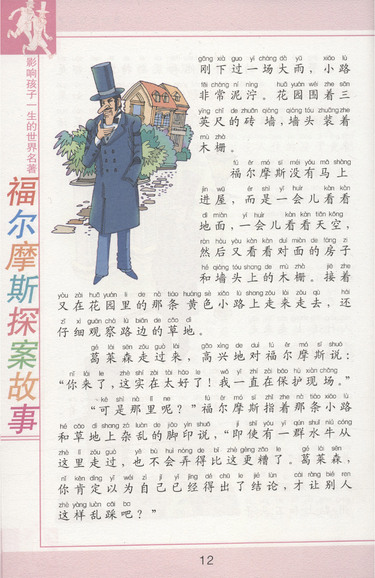 影响孩子一生的世界名著
福尔摩斯探案故事
刚下过一场大雨，小路
非常泥泞。花园围着三
英尺的砖墙，墙头装着
木栅。
福尔摩斯没有马上
进屋，而是一会儿看看
地面，一会儿看看天空，
然后又看看对面的房子
和墙头上的木栅。接着
又在花园里的那条黄色小路上走来走去，还
仔细观察路边的草地。
葛莱森走过来，高兴地对福尔摩斯说：
“你来了，这实在太好了！我一直在保护现场。”
“可是那里呢？”福尔摩斯指着那条小路
和草地上杂乱的脚印说，“即使有一群水牛从
这里走过，也不会弄得比这更糟了。葛莱森，
你肯定以为自己已经得出了结论，才让别人
这样乱踩吧？”
12